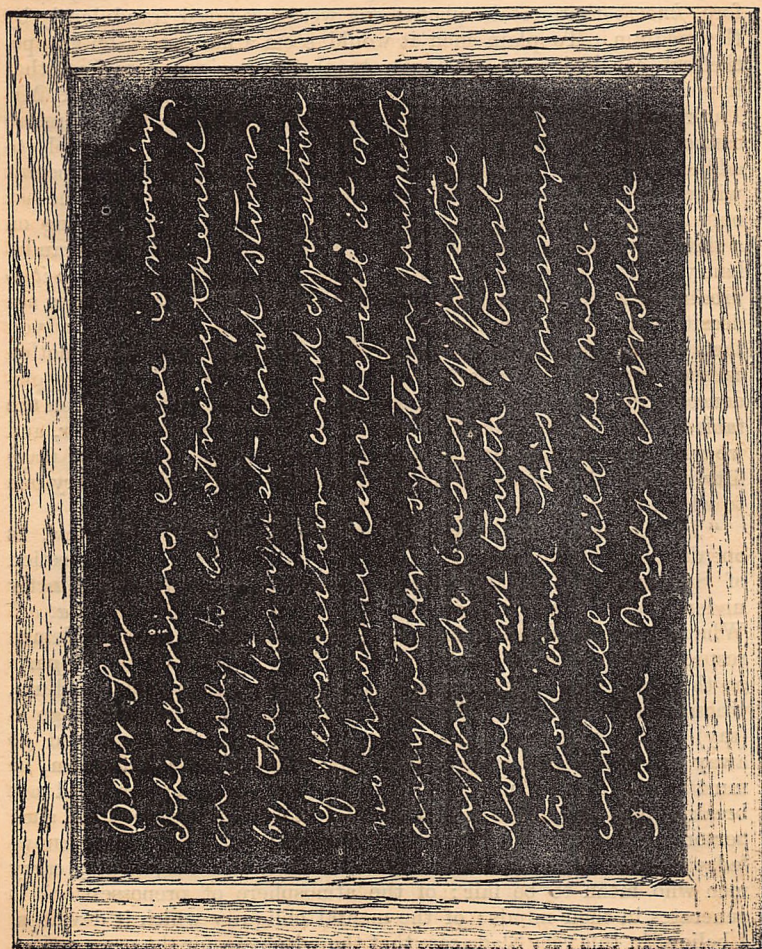 Dear Sir
The glorious cause is moving
on, only to be strengthened
by the tempest and storms
of persecution and opposition
no harm can befall it or
any other system
upon the basis of justice
love and truth, trust
to god and his messengers
and all will be well.
I am truly A.W. Slade